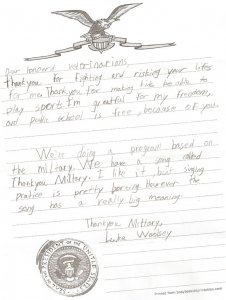 Dear honored veterinarians,
Thankyou for fighting and risking your lifes
for me. Thankyou for making kids be able to
play sports. I'm greatful for my freedom,
and public school is free, because of you.
We're doing a program based on
the military. We have a song called
Thankyou Military. I like it, but singing
practice is pretty boring however the
song has a really big meaning.
Thankyou Military,
Luke Woolsey